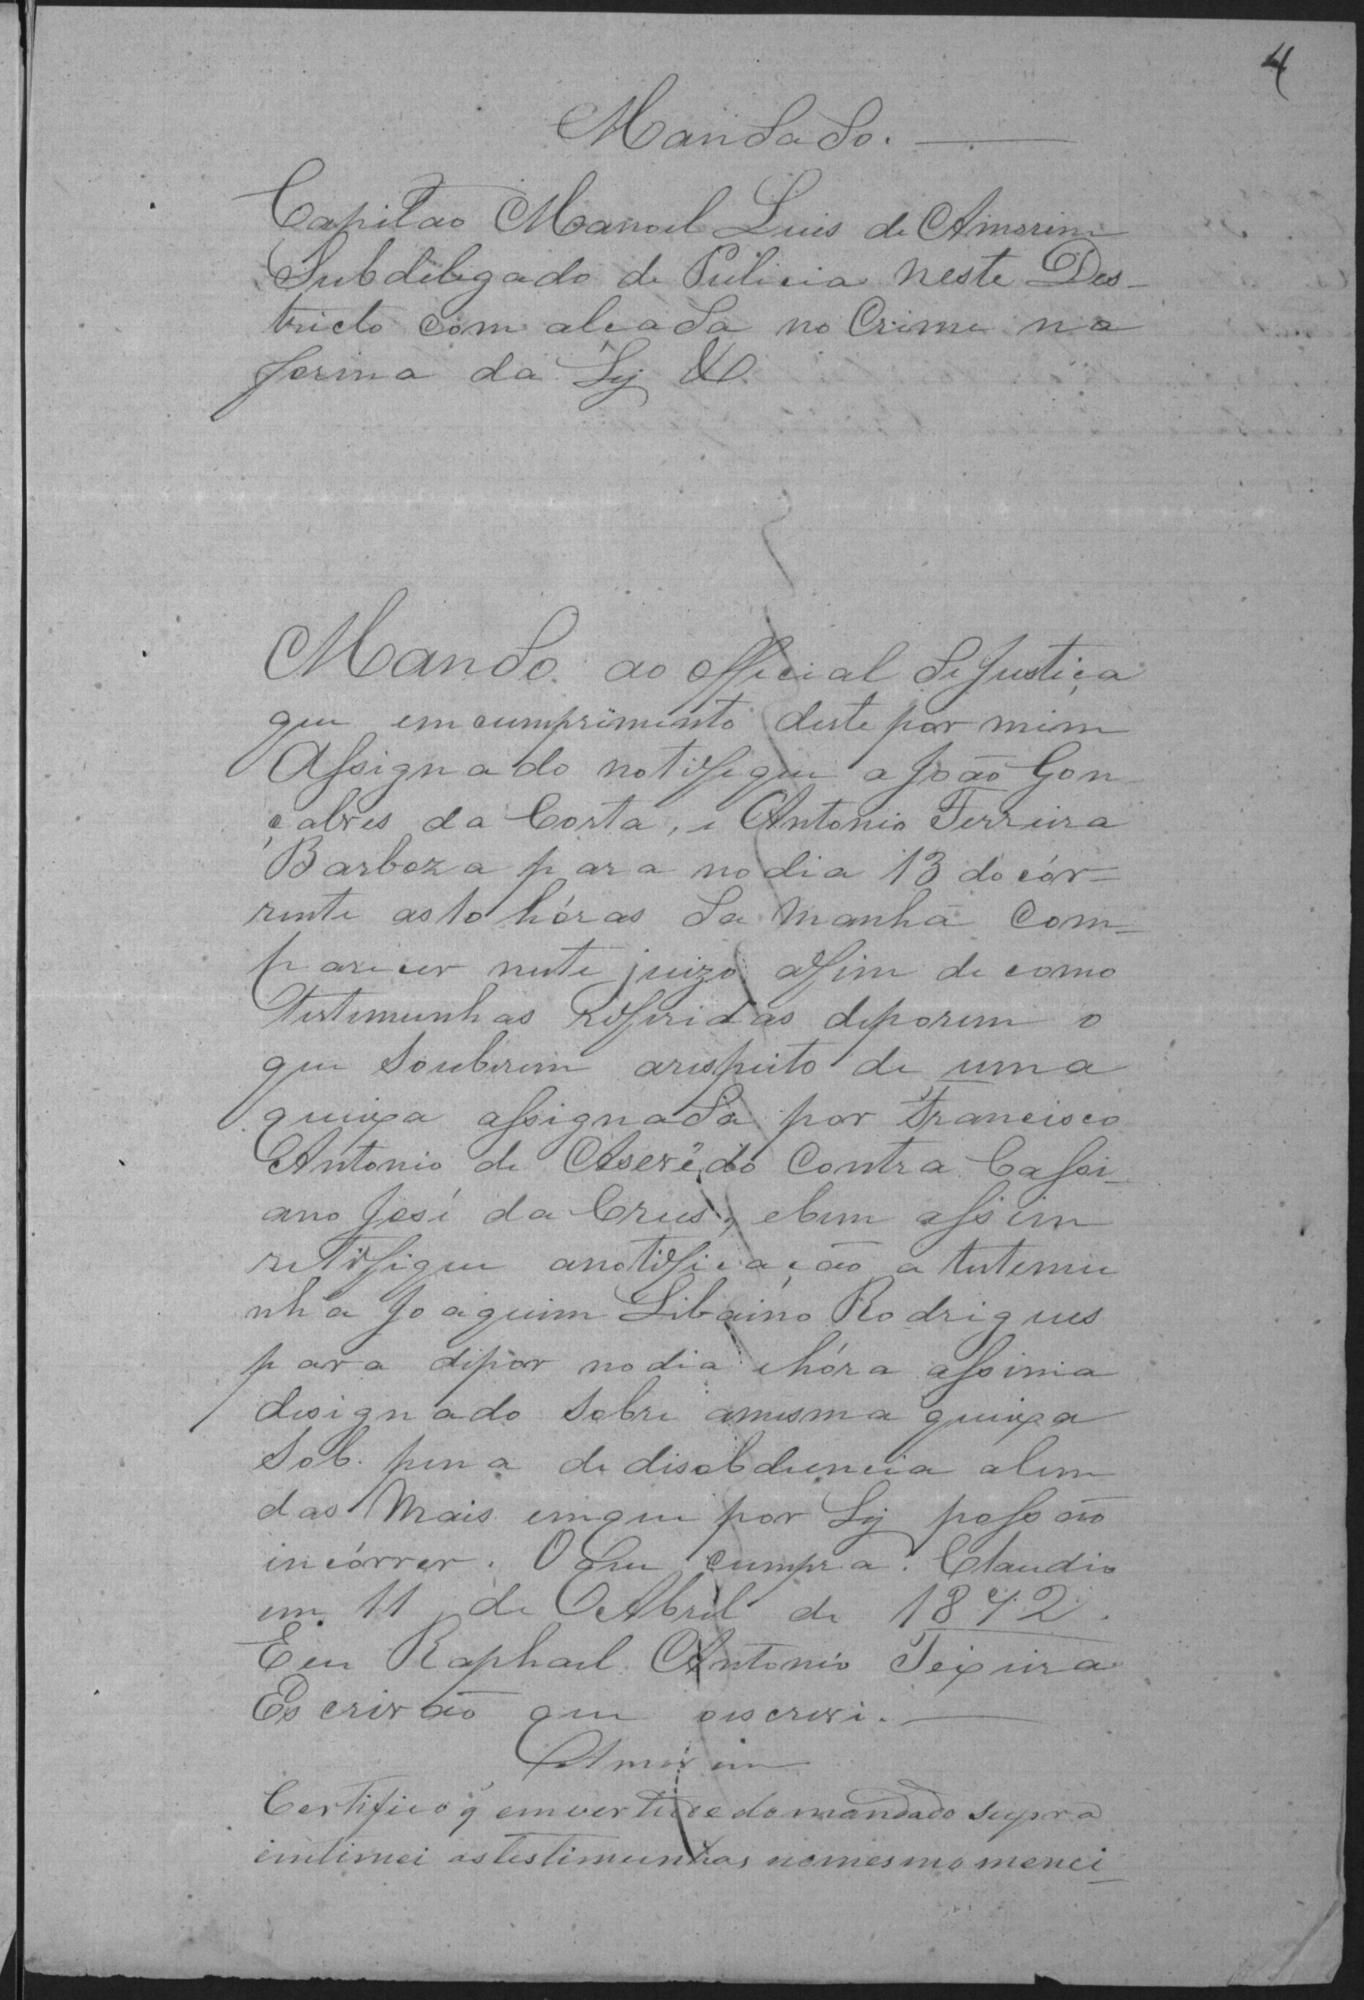 4
Mandado.
Capitão Manoel Luis de Amorim
Subdelegado de Pulicia neste Des-
tricto com alçada no Crime na
forma da Ley &.
Mando ao official de Justiça
que em cumprimento deste por mim
Assignado notifique a João Gon
çalves da Costa, e Antonio Ferreira
Barboza para no dia 13 do cór-
rente as 10 hóras da manhã com-
parecer neste juizo afim de como
Testemunhas referidas deporem o
que souberem arespeito de uma
queixa assignada por Francisco
Antonio de Aserêdo contra Cassi-
ano José da Crus, e bem assim
retifique anotificação a testemu
nha Joaquim Libaino Rodrigues
para depor no dia ehóra assima
designado sobre amesma queixa
Sob pena de disobdiencia alem
das mais emque por Ley possão
incórrer. O que cumpra. Claudio
em 11 de Abril de 1872.
Eeu Raphael Antonio Teixeira
Escrivão que oscrevi.
Amorim
Certifico q̃ em vertude do mandado supra
emtimei as testimunhas nomesmo menci-